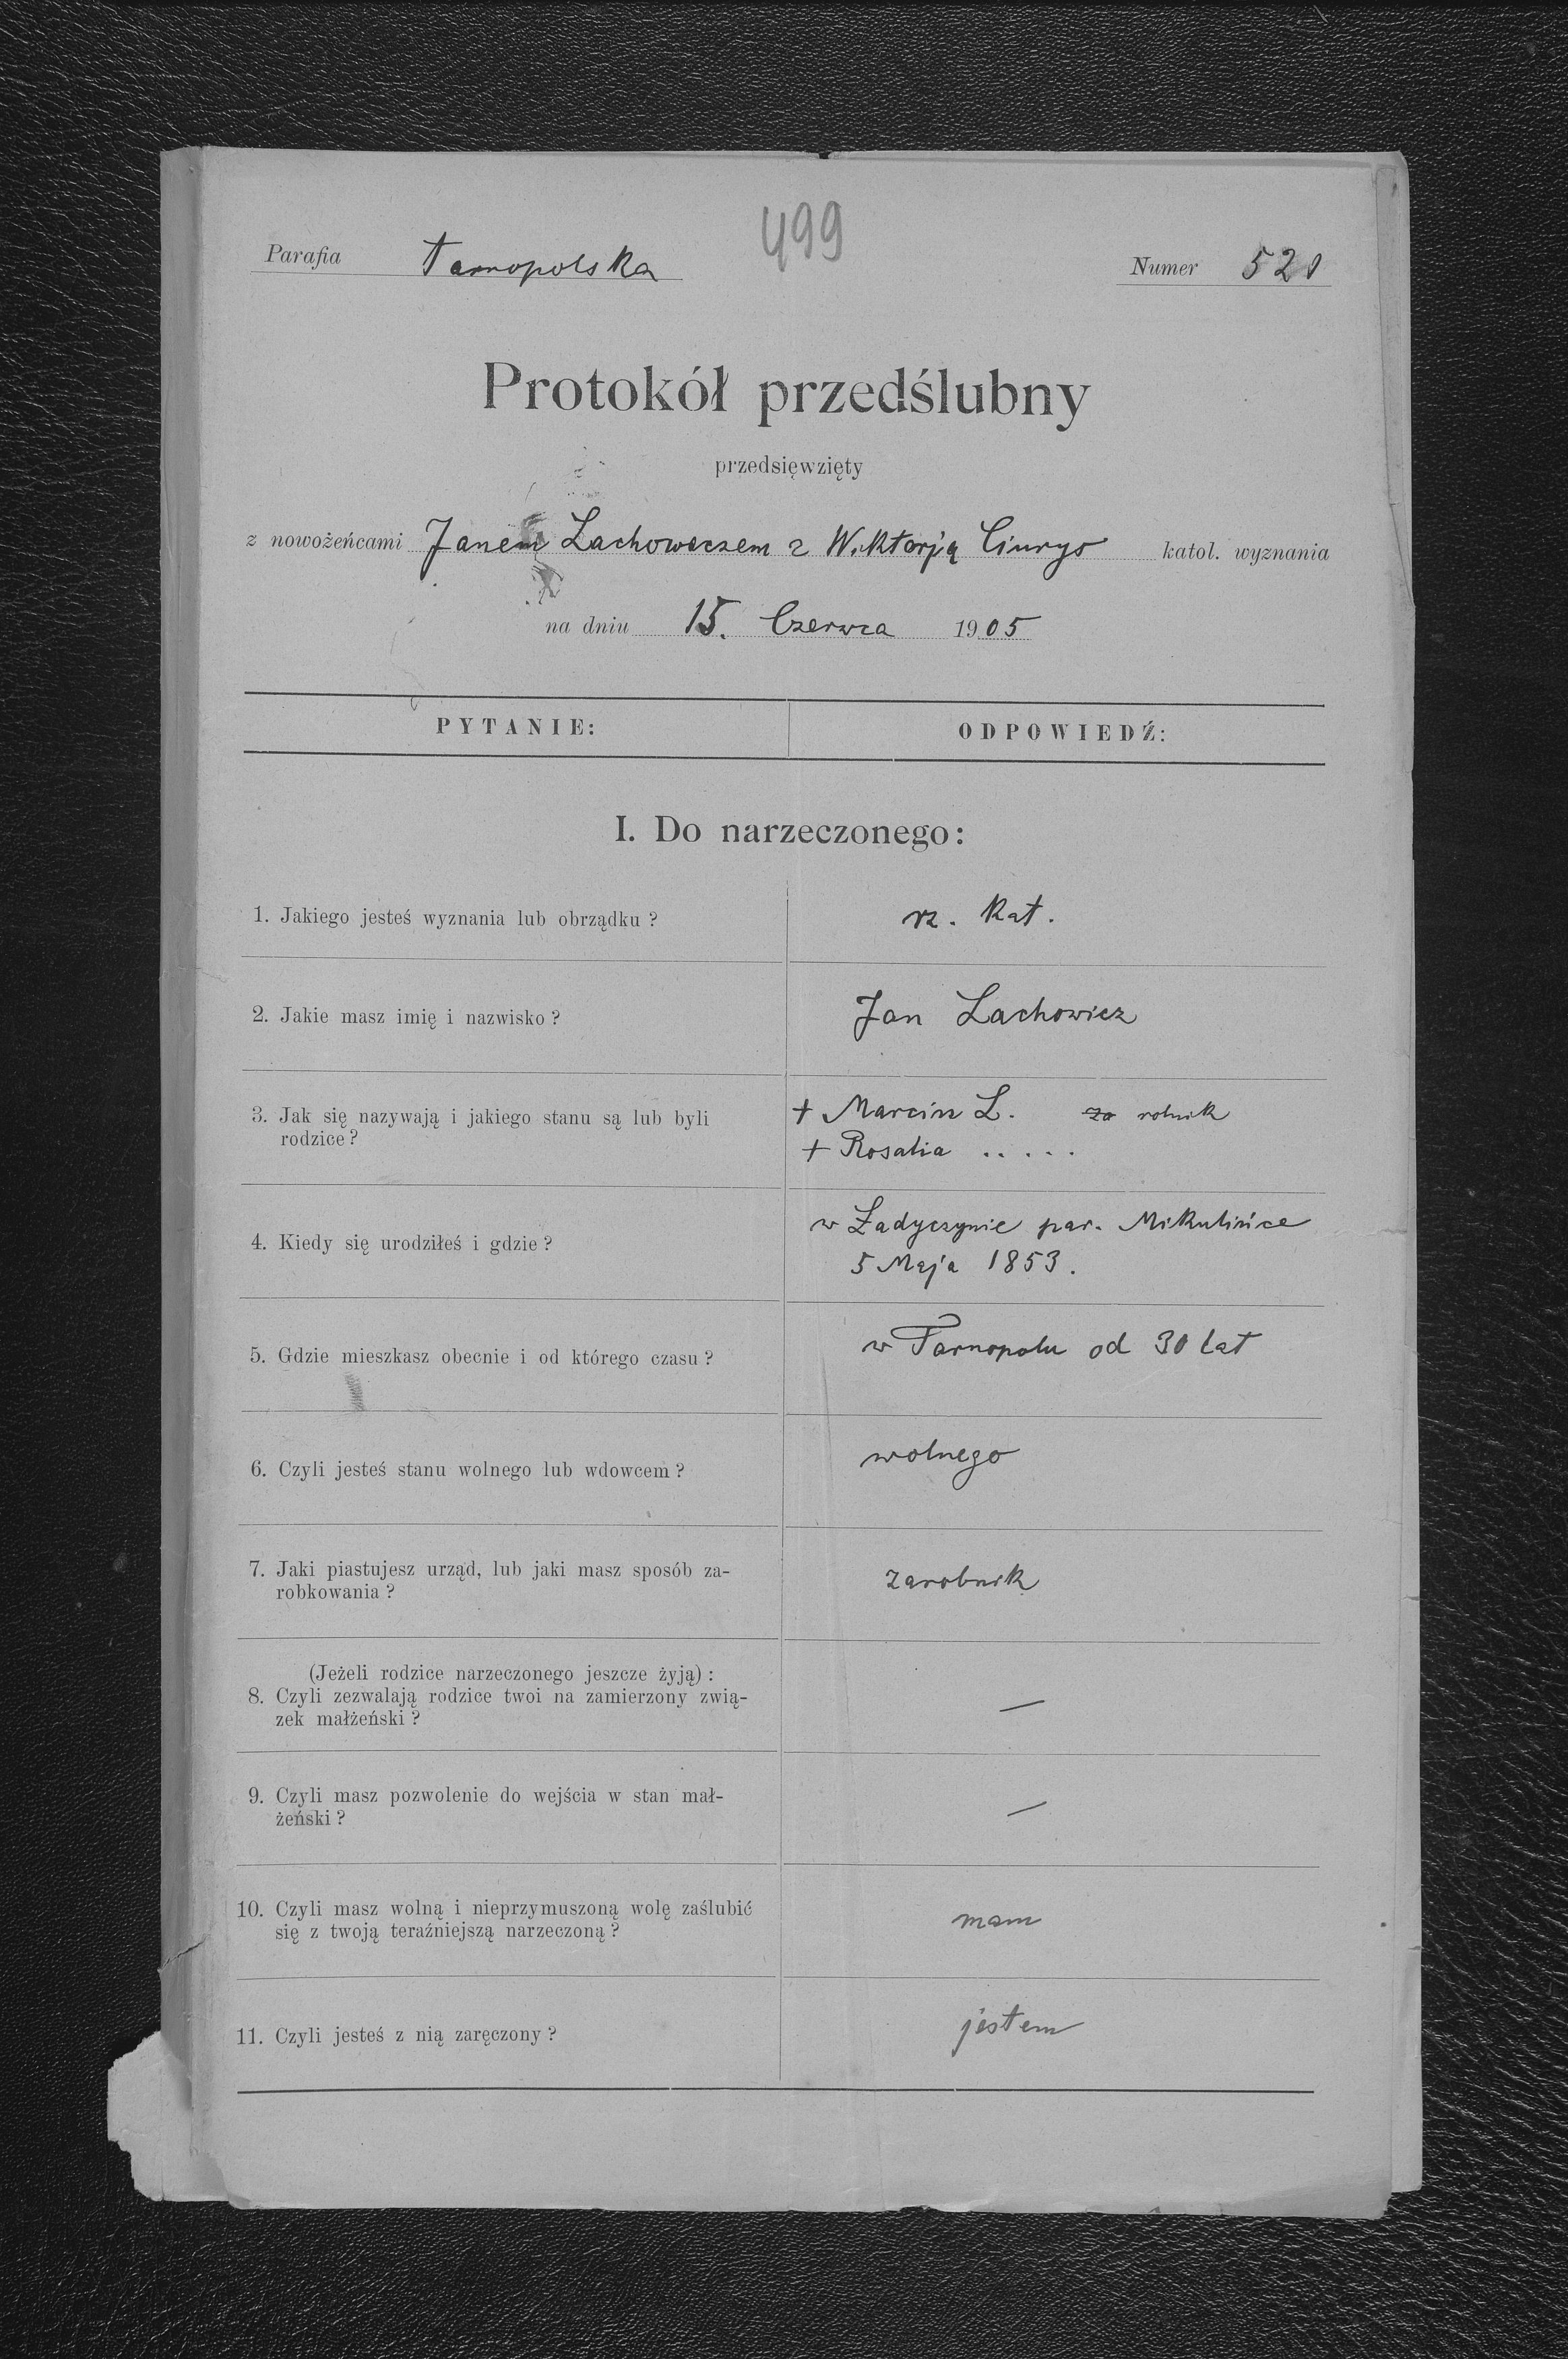 499
Parafia Tarnopolska
Numer 520
Protokół przedślubny
przedsięwzięty
z nowożeńcami Janem Lachowiczem z Wiktorją Ciurys katol. wyznania
na dniu 15. Czerwca 1905
PYTANIE: ODPOWIEDŹ:
I. Do narzeczonego:
1. Jakiego jesteś wyznania lub obrządku ? rz. kat.
2. Jakie masz imię i nazwisko ? Jan Lachowicz
3. Jak się nazywają i jakiego stanu są lub byli + Marcin L. za rolnik
rodzice ? + Rosalia .. . . .
w Ładyczynie par. Mikulińce
4. Kiedy się urodziłeś i gdzie ?
5 Maja 1853.
5. Gdzie mieszkasz obecnie i od którego czasu ? w Tarnopolu od 30 lat
6. Czyli jesteś stanu wolnego lub wdowcem ? wolnego
7. Jaki piastujesz urząd, lub jaki masz sposób za-
robkowania ? zarobnik
(Jeżeli rodzice narzeczonego jeszcze żyją) :
8. Czyli zezwalają rodzice twoi na zamierzony zwią- —
zek małżeński ?
9. Czyli masz pozwolenie do wejścia w stan mał- —
żeński ?
10. Czyli masz wolną i nieprzymuszoną wolę zaślubić mam
się z twoją teraźniejszą narzeczoną ?
11. Czyli jesteś z nią zaręczony ? jestem